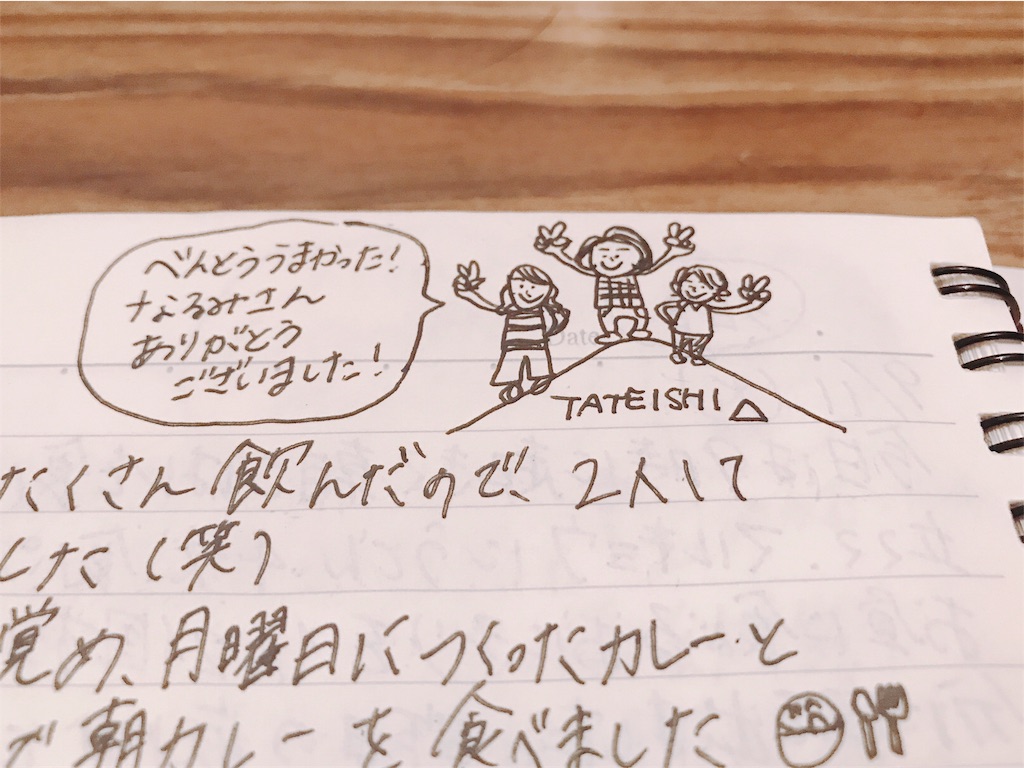 べんとううまかった!
なるみさん
ありがとう
ございました!
Date
TATEISHI
たくさん飲んだので、2人して
した(笑)
覚め、月曜日につくったカレーと
で朝カレーを食べました